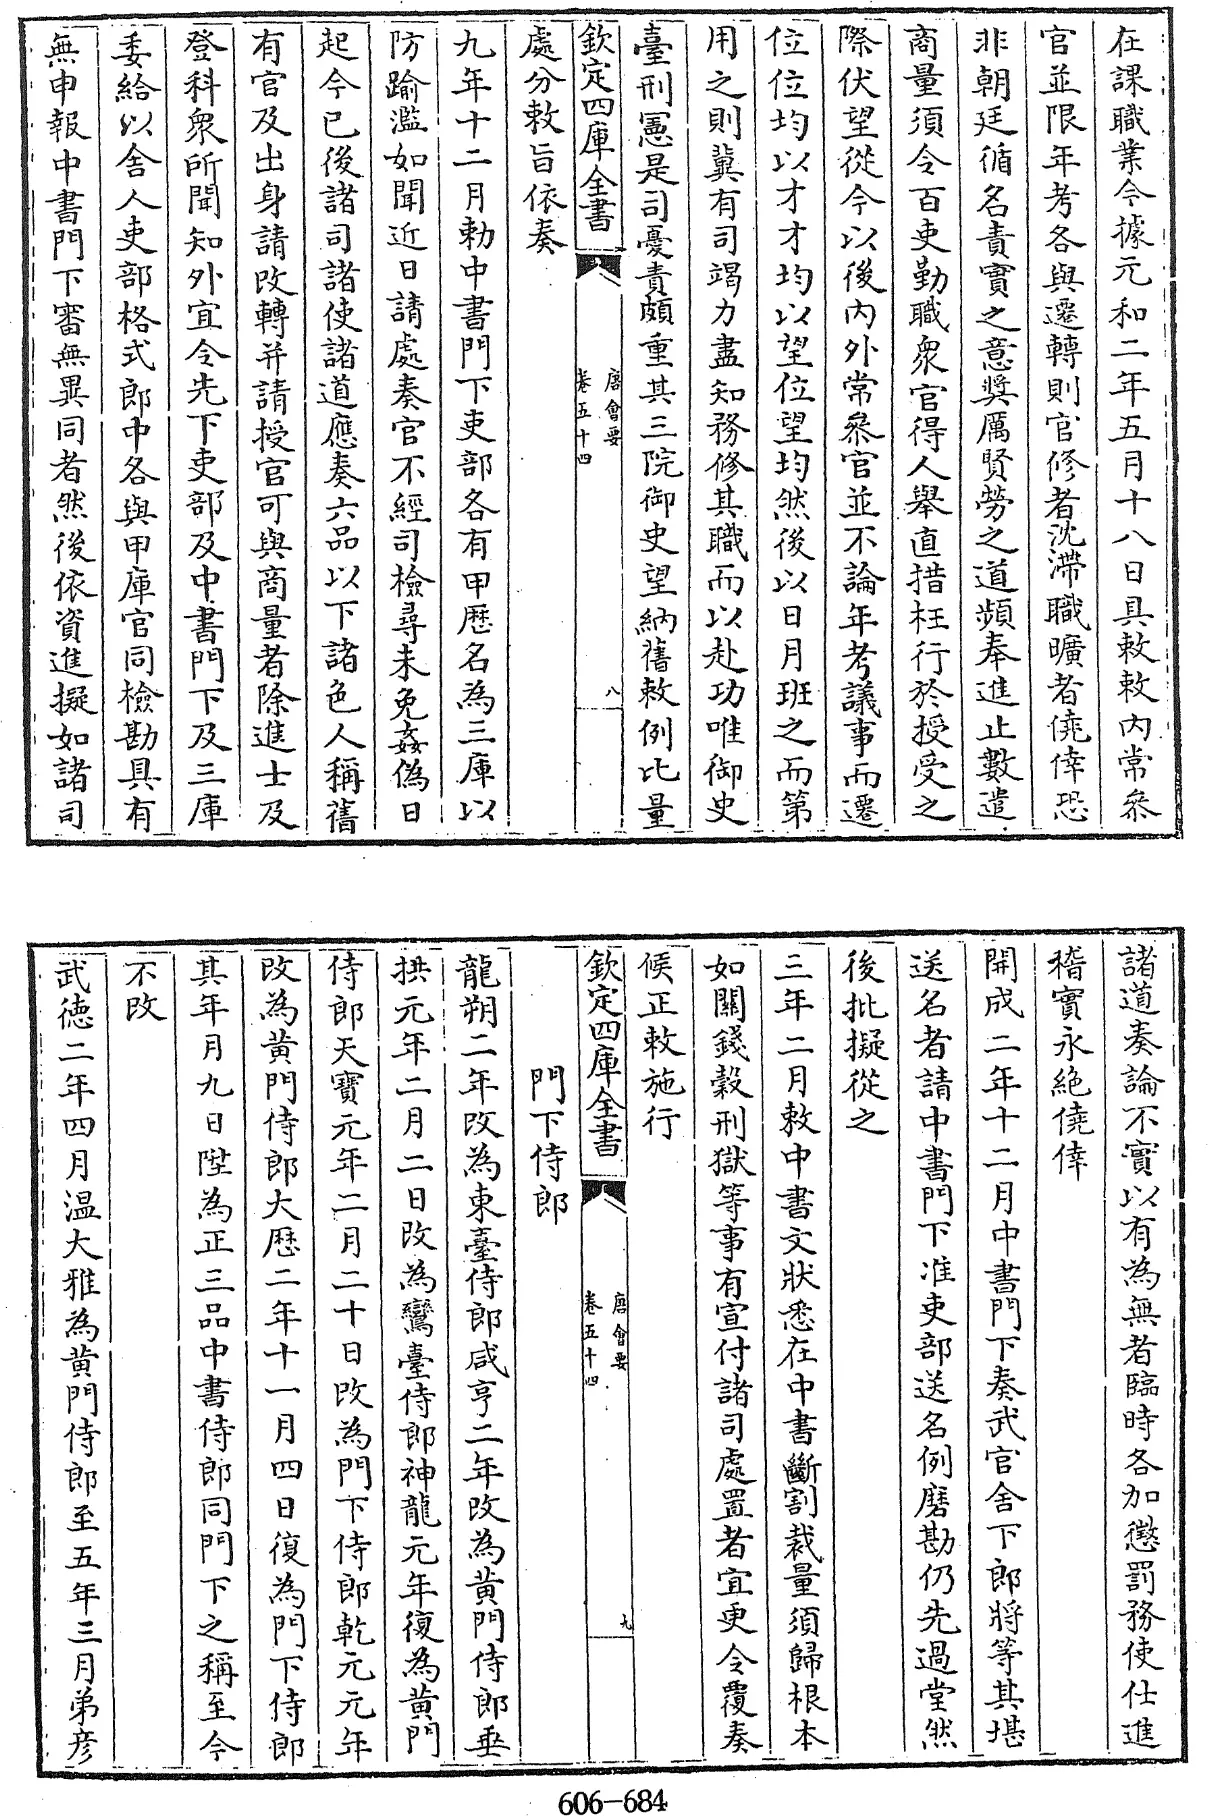 在課職業今據元和二年五月十八日具敕敕内常叅
官並限年考各與遷轉則官修者沈滯職曠者僥倖恐
非朝廷循名責實之意奬厲賢勞之道頻奉進止數遣
商量須令百吏勤職衆官得人舉直措枉行於授受之
際伏望從今以後内外常叅官並不論年考議事而遷
位位均以才才均以望位望均然後以日月班之而第
用之則冀有司竭力盡知務修其職而以赴功唯御史
臺刑憲是司憂責頗重其三院御史望納舊敕例比量
欽定四庫全書
唐會要
卷五十四
八
處分敕旨依奏
九年十二月勅中書門下吏部各有甲歷名為三庫以
防踰濫如聞近日請處奏官不經司檢尋未免姦偽日
起今已後諸司諸使諸道應奏六品以下諸色人稱舊
有官及出身請改轉并請授官可與商量者除進士及
登科衆所聞知外宜令先下吏部及中書門下及三庫
委給以舍人吏部格式郎中各與甲庫官同檢勘具有
無申報中書門下審無異同者然後依資進擬如諸司
諸道奏論不實以有為無者臨時各加懲罰務使仕進
稽實永絕僥倖
開成二年十二月中書門下奏武官舍下郎將等其堪
送名者請中書門下准吏部送名例磨勘仍先過堂然
後批擬從之
三年二月敕中書文狀悉在中書斷割裁量須歸根本
如關錢穀刑獄等事有宣付諸司處置者宜更令覆奏
候正敕施行
欽定四庫全書
唐會要
卷五十四
九
門下侍郎
龍朔二年改為東臺侍郎咸亨二年改為黄門侍郎垂
拱元年二月二日改為鸞臺侍郎神龍元年復為黄門
侍郎天寶元年二月二十日改為門下侍郎乾元元年
改為黄門侍郎大歷二年十一月四日復為門下侍郎
其年月九日陞為正三品中書侍郎同門下之稱至今
不改
武德二年四月温大雅為黄門侍郎至五年三月弟彥
606-684